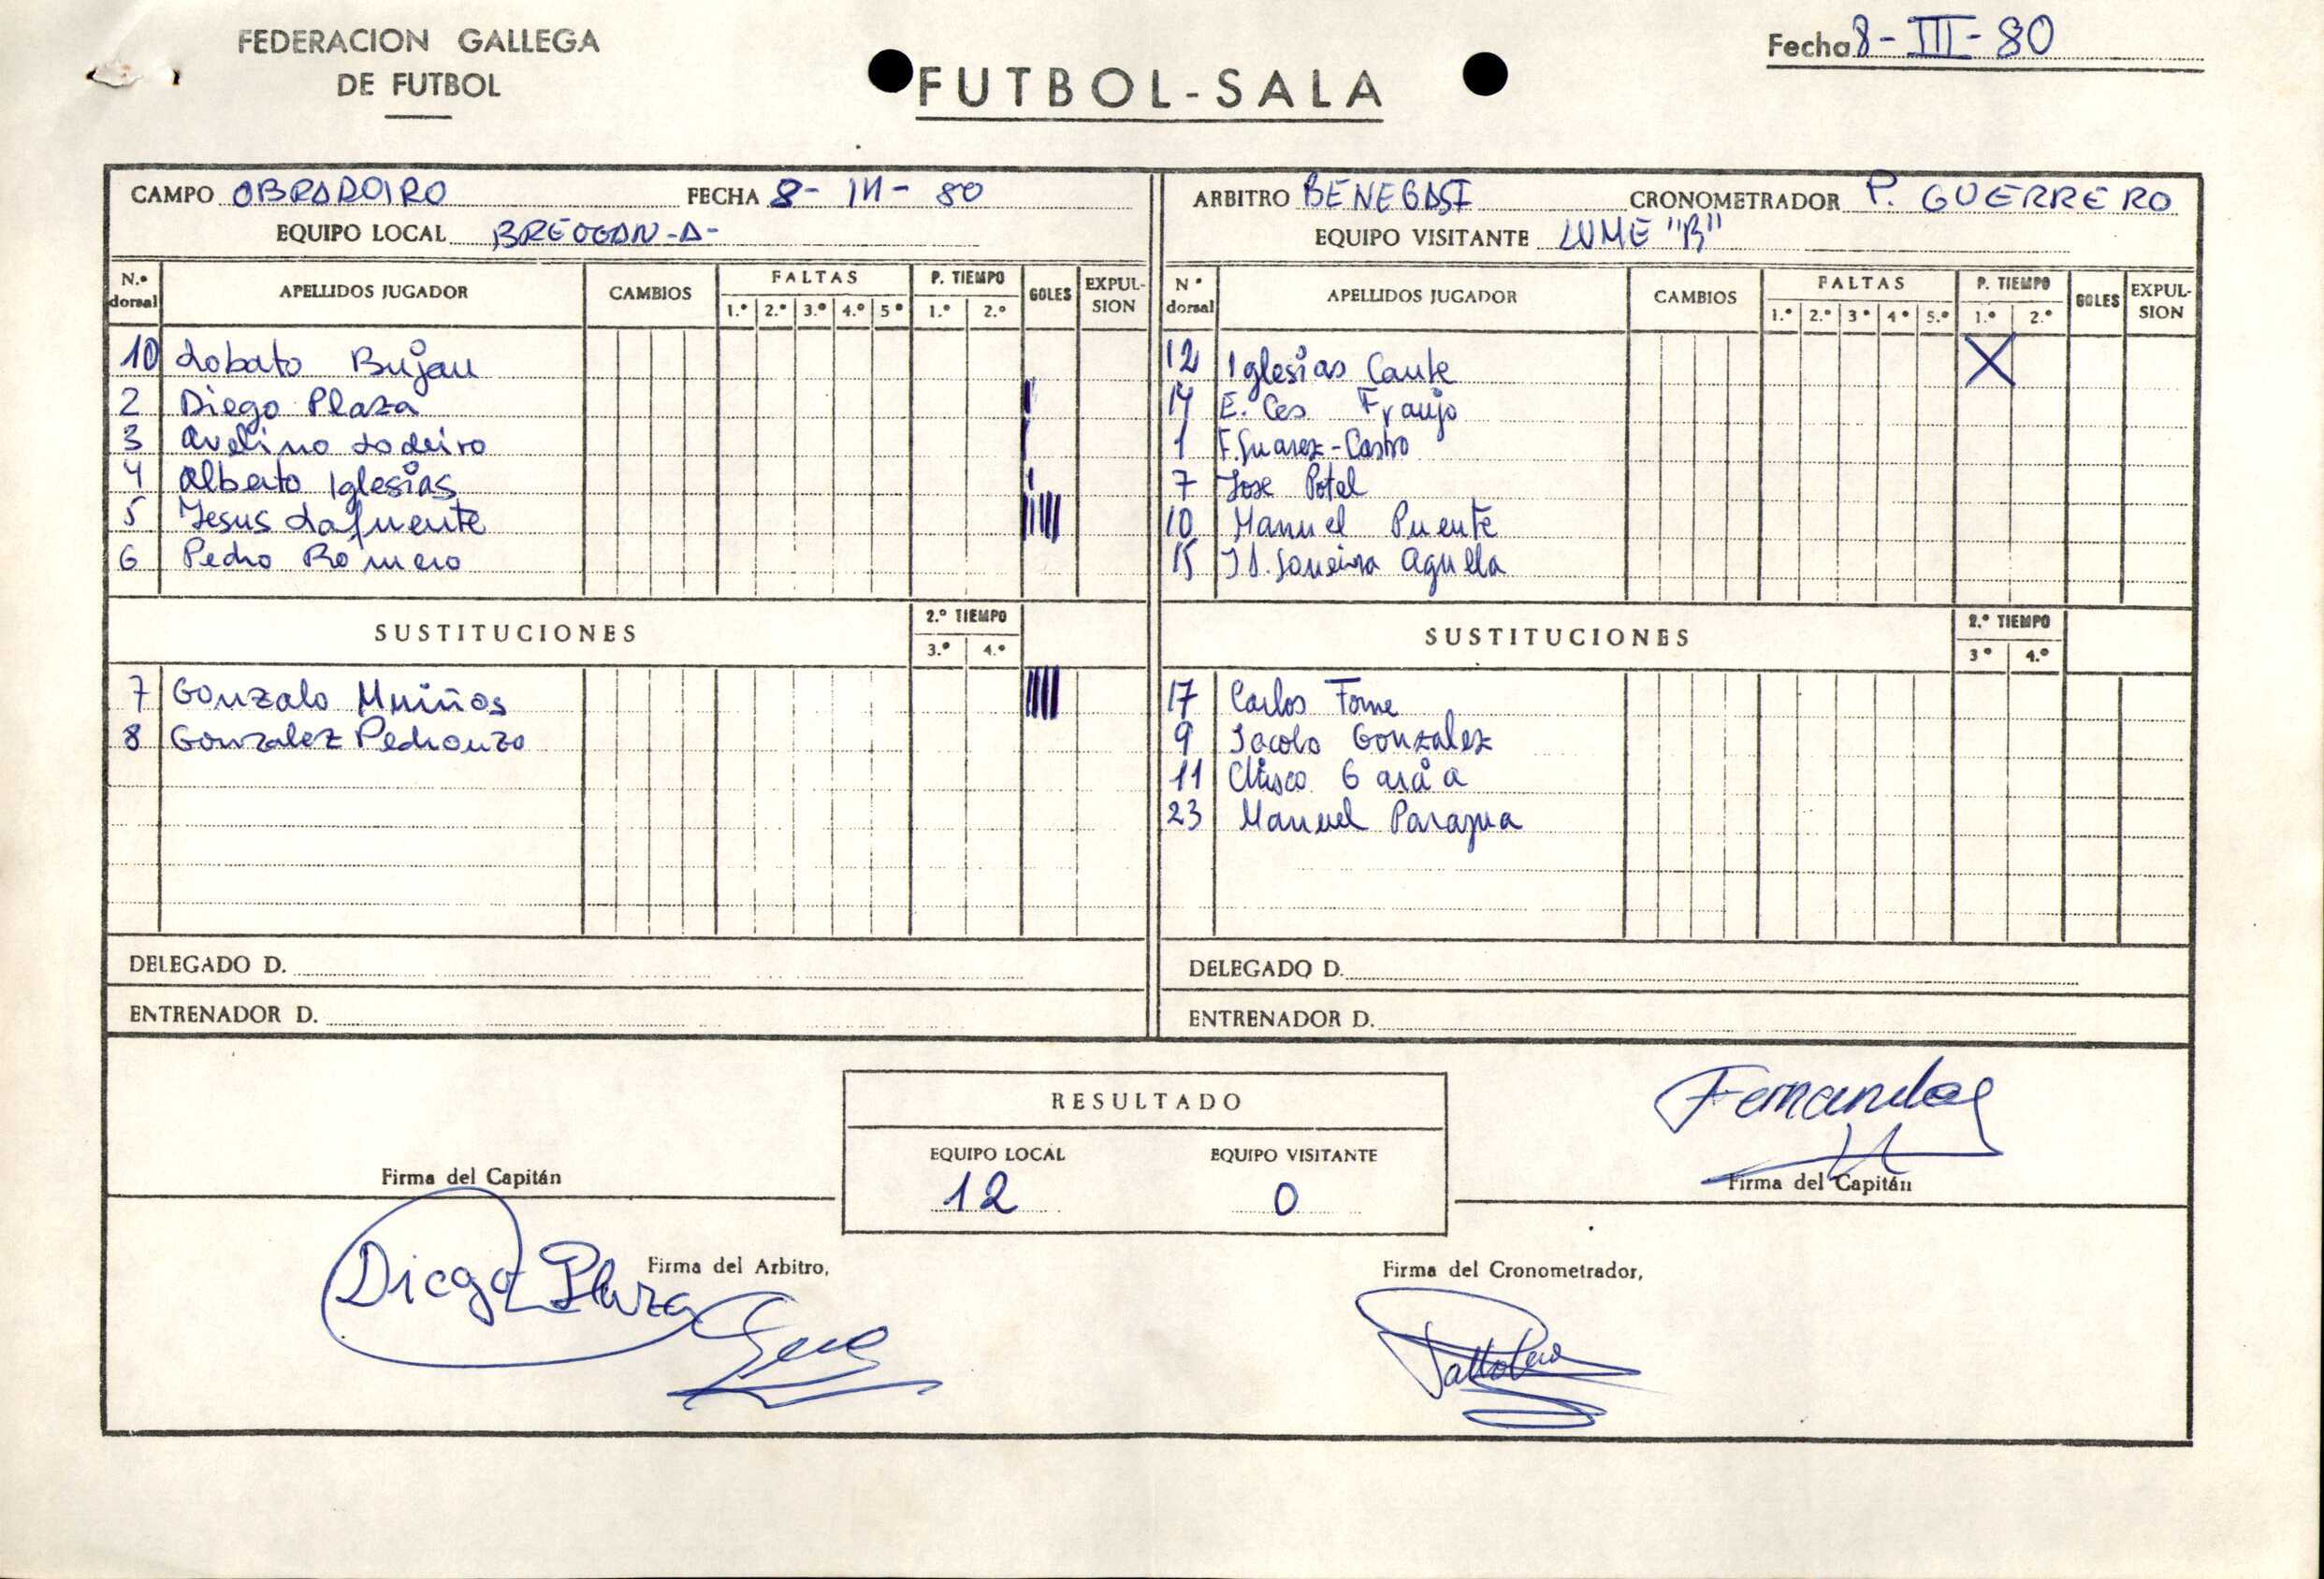 FEDERACION GALLEGA
DE FUTBOL
FUTBOL-SALA
Fecha 8-III-80
CAMPO OBRADOIRO FECHA 8-III-80
EQUIPO LOCAL BREOGAN-A-
N.º dorsal APELLIDOS JUGADOR CAMBIOS FALTAS 1.º 2.º 3.º 4.º 5º P. TIEMPO 1.º 2.º GOLES EXPULSION
10 Lobato Bujan
2 Diego Plaza
3 Avelino Lodeiro
4 Alberto Iglesias
5 Jesus Lafuente
6 Pedro Romero
SUSTITUCIONES 2.º TIEMPO 3.º 4.º
7 Gonzalo Muiños
8 Gonzalez Pedrouzo
DELEGADO D.
ENTRENADOR D.
ARBITRO BENEGASI CRONOMETRADOR P. GUERRERO
EQUIPO VISITANTE LUME "B"
Nº dorsal APELLIDOS JUGADOR CAMBIOS FALTAS 1.º 2.º 3º 4º 5.º P. TIEMPO 1.º 2.º GOLES EXPULSION
12 Iglesias Caute X
14 E. Ces Fraujo
1 F. Suarez-Castro
7 Jose Potel
10 Manuel Puente
15 Agulla
SUSTITUCIONES 2.º TIEMPO 3º 4.º
17 Carlos Tome
9 Jacobo Gonzalez
11 Chisco Garcia
23 Manuel
DELEGADO D.
ENTRENADOR D.
RESULTADO
EQUIPO LOCAL EQUIPO VISITANTE
12 0
Firma del Capitán
Diego Plaza
Firma del Arbitro,
Fernandez
Firma del Capitán
Firma del Cronometrador,